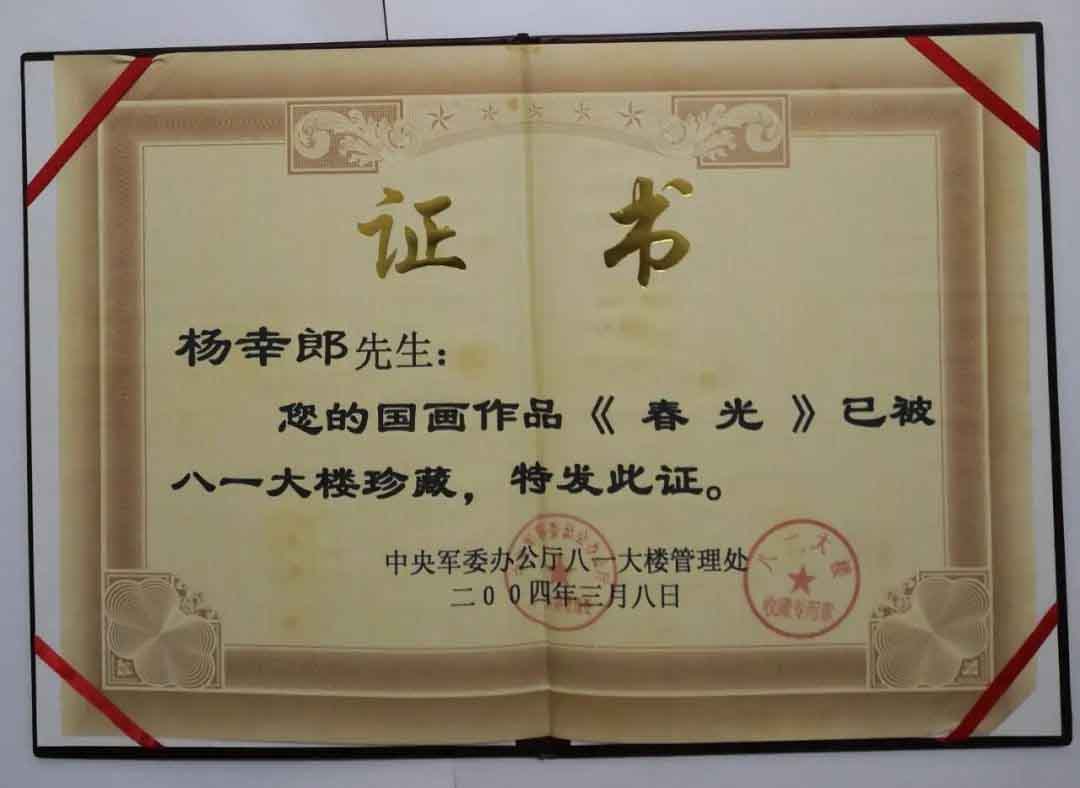 证书
杨幸郎先生:
您的国画作品《春光》已被
八一大楼珍藏，特发此证。
中央军委办公厅八一大楼管理处
二00四年三月八日
八一大楼
收藏专用章